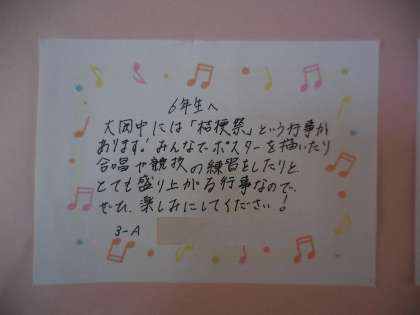 6年生へ
大岡中には「桔梗祭」という行事が
あります！みんなでポスターを描いたり
合唱や競技の練習をしたりと
とても盛り上がる行事なので、
ぜひ、楽しみにしてください！
3-A